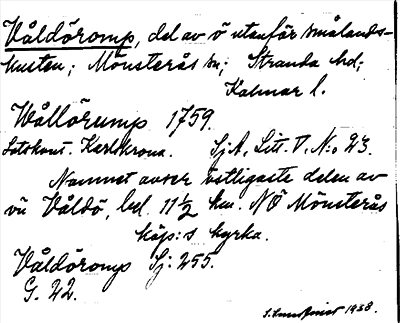 Våldöromp, del av ö utanför smålands-
kusten; Mönsterås sn; Stranda hd;
Kalmar l.
Wållörump 1759.
Sjökont. Karlskrona. SjA, Litt. V. N:o 23.
Namnet avser östligaste delen av
ön Våldö, bel. 11½ km. NÖ Mönsterås
köp:s kyrka.
Våldöromp Sj: 255.
G. 22.
1938.